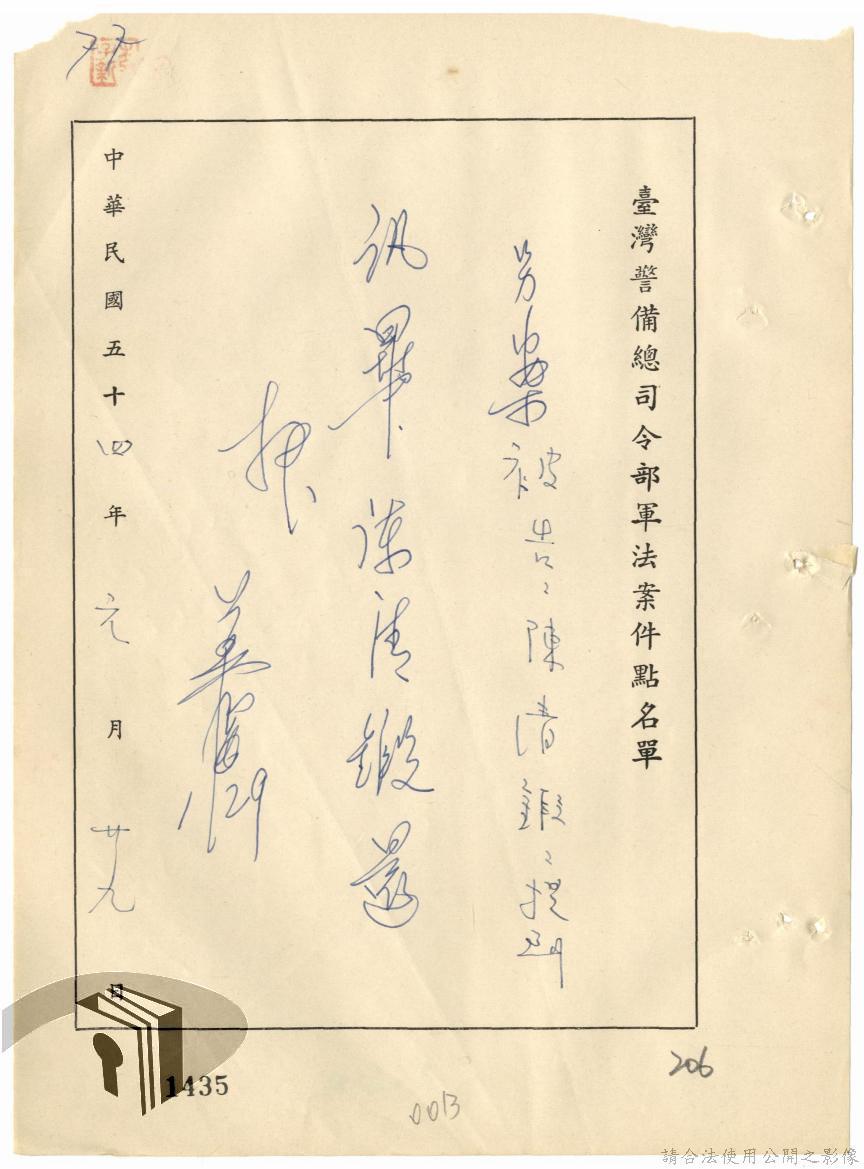 臺灣警備總司令部軍法案件點名單
另案被告：陳清鍛：提到
訊畢陳清鍛還
押
1/29
中華民國五十四年元月廿九日
1435
0013
206
請合法使用公開之影像